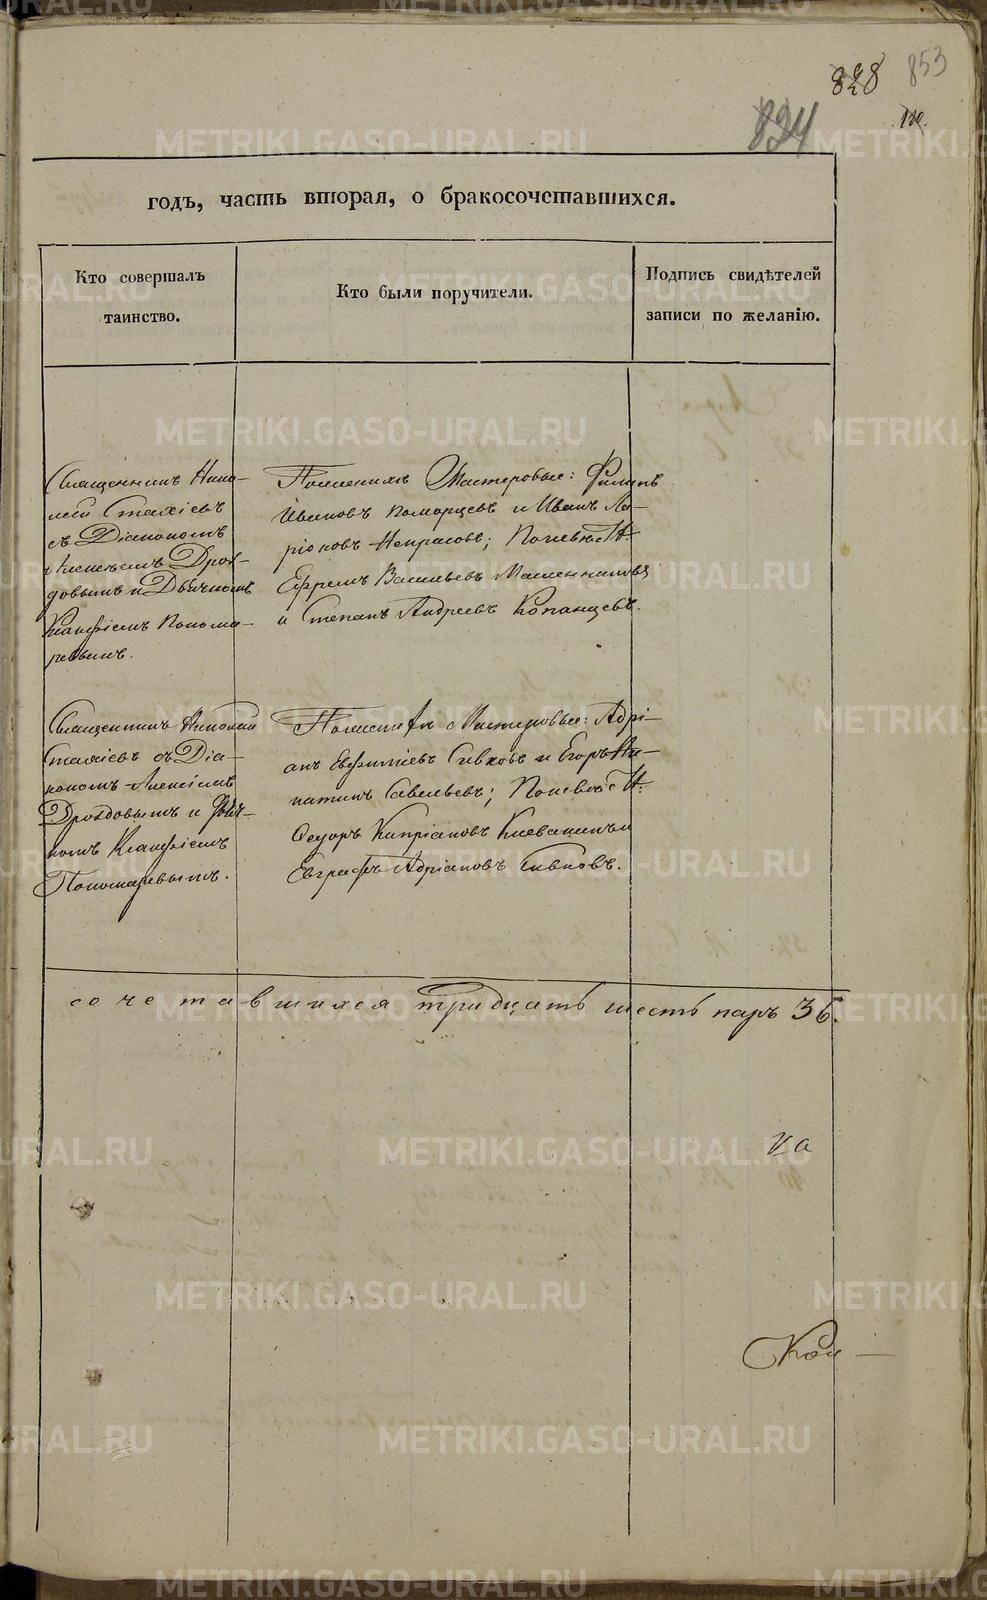 828 853
824
110.
годъ, часть вторая, о бракосочетавшихся.
Кто совершалъ
таинство.
Кто были поручители.
Подпись свидѣтелей
записи по желанію.
Священникъ Нико-
лай Стахіевъ
съ Діакономъ
Алексѣемъ Дроз-
довымъ и Дьячкомъ
Клавдіемъ Понома-
ревымъ.
По женихѣ Мастеровые: Филипъ
Ивановъ Поморцевъ и Иванъ Ла-
ріоновъ Некрасовъ; По невѣстѣ
Ефремъ Васильевъ Масленниковъ
и Степанъ Андреевъ Копанцевъ.
Священникъ Николай
Стахіевъ съ Діа-
кономъ Алексѣемъ
Дроздовымъ и Дьяч-
комъ Клавдіемъ
Пономаревымъ.
По женихѣ Мастеровые: Адрі-
анъ Евфиміевъ Сивковъ и Егоръ
Савельевъ; По невѣстѣ
Ѳедоръ Кипріановъ
Евграфъ Адріановъ Сивковъ.
сочетавшихся тридцать шесть паръ 36.
METRIKI.GASO-URAL.RU